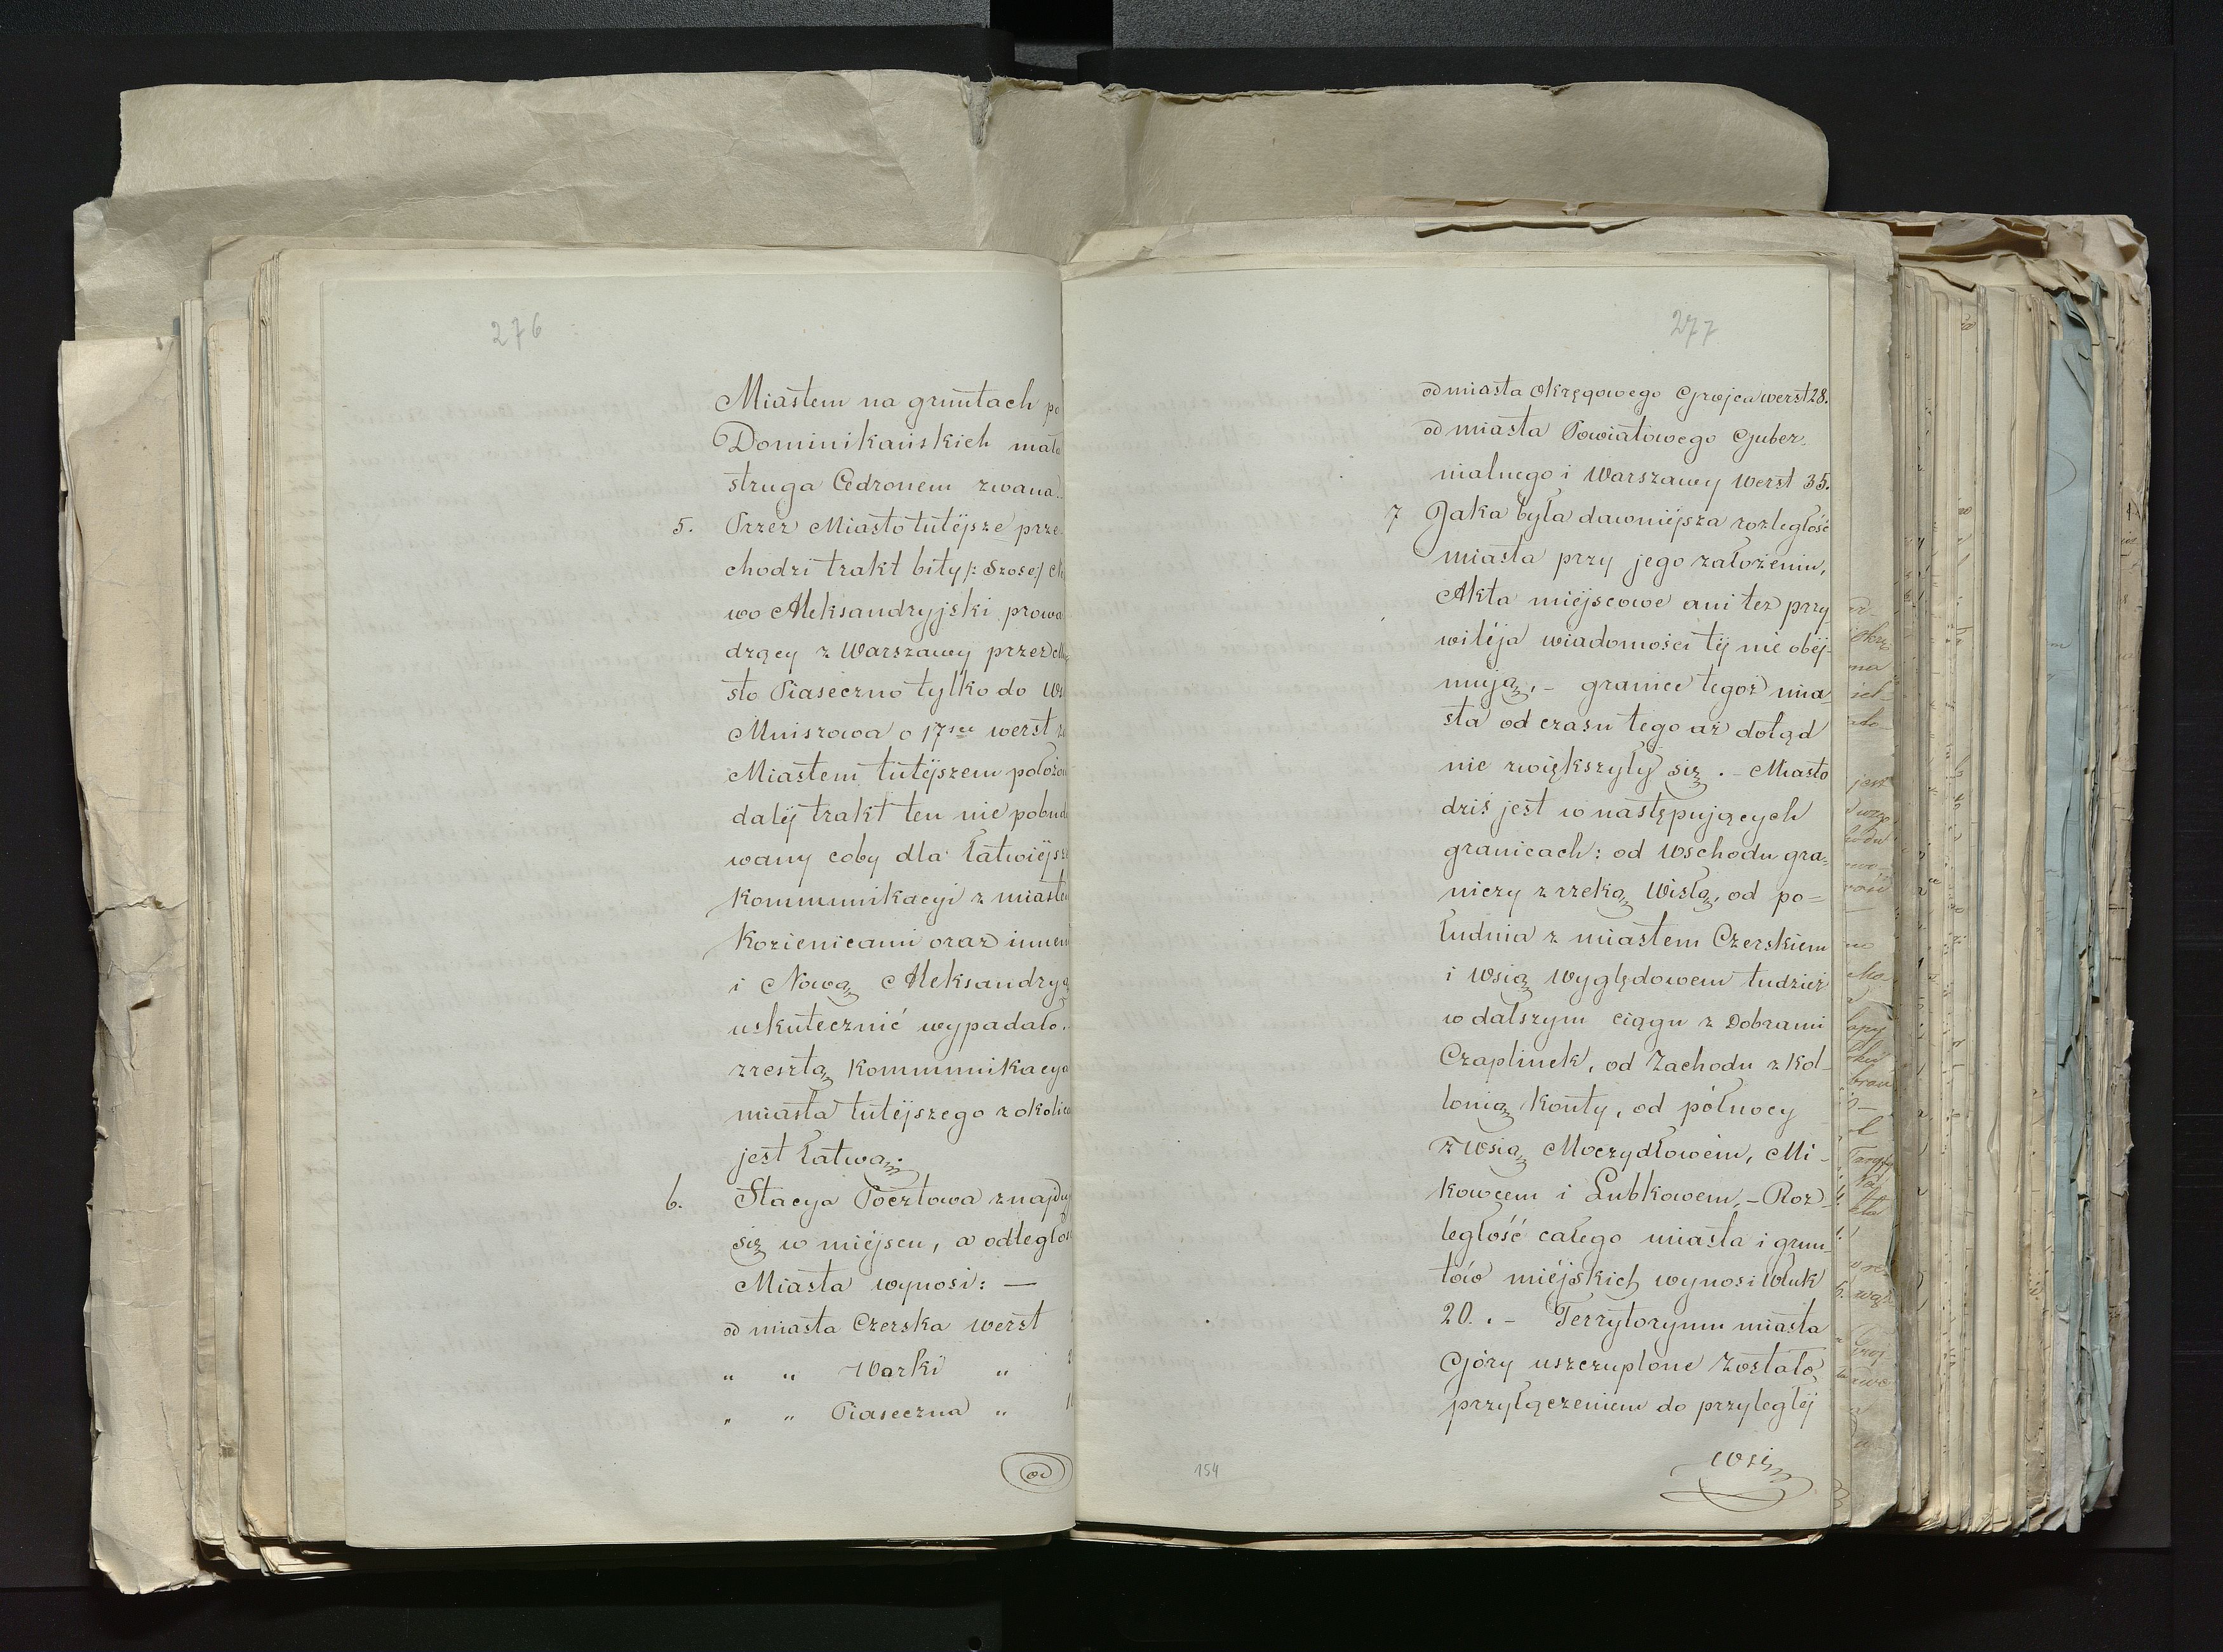 276
Miastem na gruntach po
Dominikańskich mała
struga Cedronem zwana.
5. Przez Miasto tutéjsze prze-
chodzi trakt bity /: Szose :/
wo Aleksandryjski prowa
dzący z Warszawy przez
sto Piaseczno tylko do Wsi
Mniszewa o 17 werst za
Miastem tutéjszem położon
daléj trakt ten nie pobudo
wany coby dla łatwiéjszé
kommunikacyi z miastem
Kozienicami oraz innem
i Nową Aleksandryą
uskutecznić wypadało.
zresztą kommunikacya
miasta tutéjszego z okolica
jest łatwą.
6. Stacya Pocztowa znajduj
się w miéjscu, a odległoś
Miasta wynosi: —
od miasta Czerska werst
" " Warki "
" " Piaseczna "
od
277
od miasta Okręgowego Grojca werst 28.
od miasta Powiatowego Guber-
nialnego i Warszawy werst 35.
7 Jaka była dawniéjsza rozległość
miasta przy jego założeniu,
Akta miéjscowe ani też przy-
wiléja wiadomości téj nie obéj-
mują, – granice tegoż mia-
sta od czasu tego aż dotąd
nie zwiększyły się. – Miasto
dziś jest w następujących
granicach: od wschodu gra-
niczy z rzeką Wisłą, od po=
łudnia z miastem Czerskiem
i wsią Wyględowem tudzież
w dalszym ciągu z Dobrami
Czaplinek, od Zachodu z Kol-
lonią Kąty, od północy
z wsią Moczydłowém, Mi-
kowcem i Lubkowem, – Roz-
ległość całego miasta i grun-
tów miéjskich wynosi Włuk
20. . – Terrytoryum miasta
Góry uszczuplone zostało,
przyłączeniem do przyległéj
wsi
154